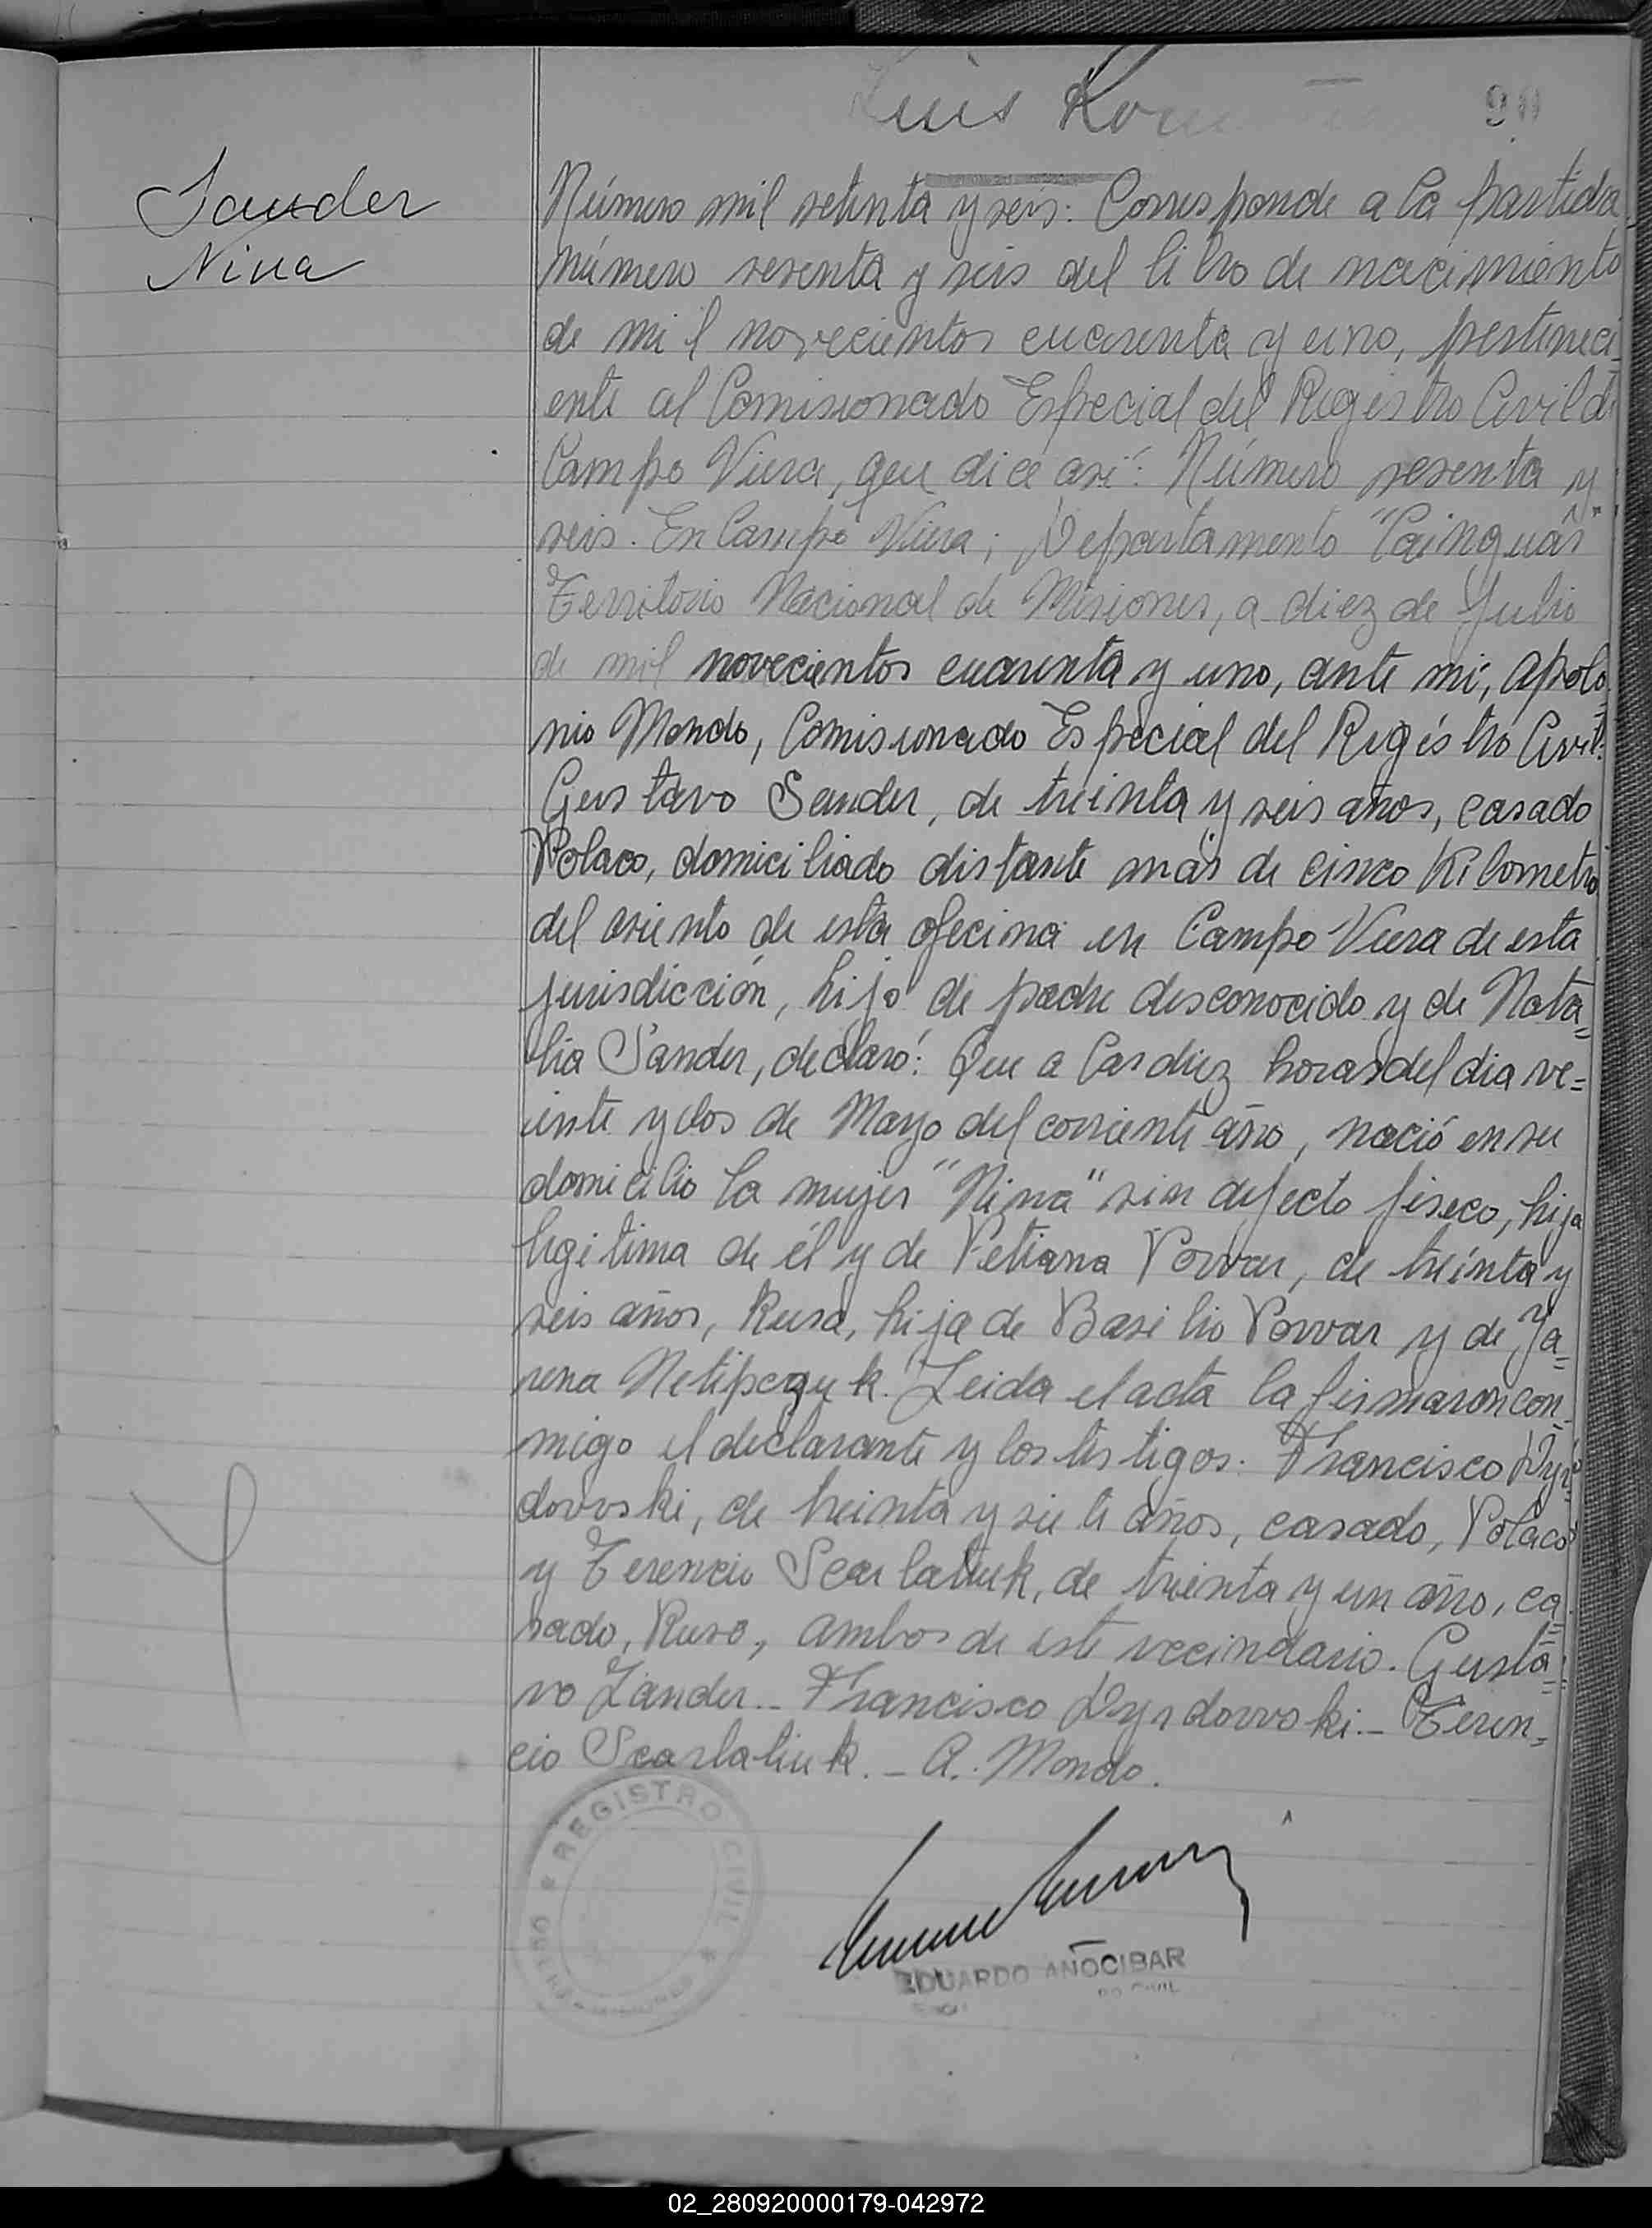 Luis
90
Sander
Nina
Número mil setenta y seis: Corresponde a la partida
número sesenta y seis del libro de nacimiento
de mil novecientos cuarenta y uno, perteneci_
ente al Comisionado Especial del Registro Civil de
Campo Viera, que dice así: Número sesenta y
seis. En Campo Viera, Departamento "Cainguás"
Territorio Nacional de Misiones, a diez de Julio
de mil novecientos cuarenta y uno, ante mí, Apolo_
nio Mondo, Comisionado Especial del Registro Civil:
Gustavo Sander, de treinta y seis años, casado
Polaco, domiciliado distante más de cinco Kilometro
del asiento de esta oficina en Campo Viera de esta
jurisdicción, hijo de padre desconocido y de Nata=
lia Sander, declaró: Que a las diez horas del dia ve=
inte y dos de Mayo del corriente año, nació en su
domicilio la mujer "Nina" sin defecto fisico, hija
legitima de él y de Petiana Povvar, de treinta y
seis años, Rusa, hija de Basilio Povvar y de Ja=
rena Netipczuk. Leida el acta la firmaron con_
migo el declarante y los testigos. Francisco Dyr=
dovvski, de treinta y siete años, casado, Polaco
y Terencio Scarlatiuk, de treinta y un año, ca=
sado, Ruso, ambos de este vecindario. Gusta=
vo Zander._ Francisco Dyrdovvski._ Teren=
cio Scarlatiuk._ A. Mondo.
REGISTRO CIVIL
EDUARDO AÑOCIBAR
CIVIL
02_280920000179-042972